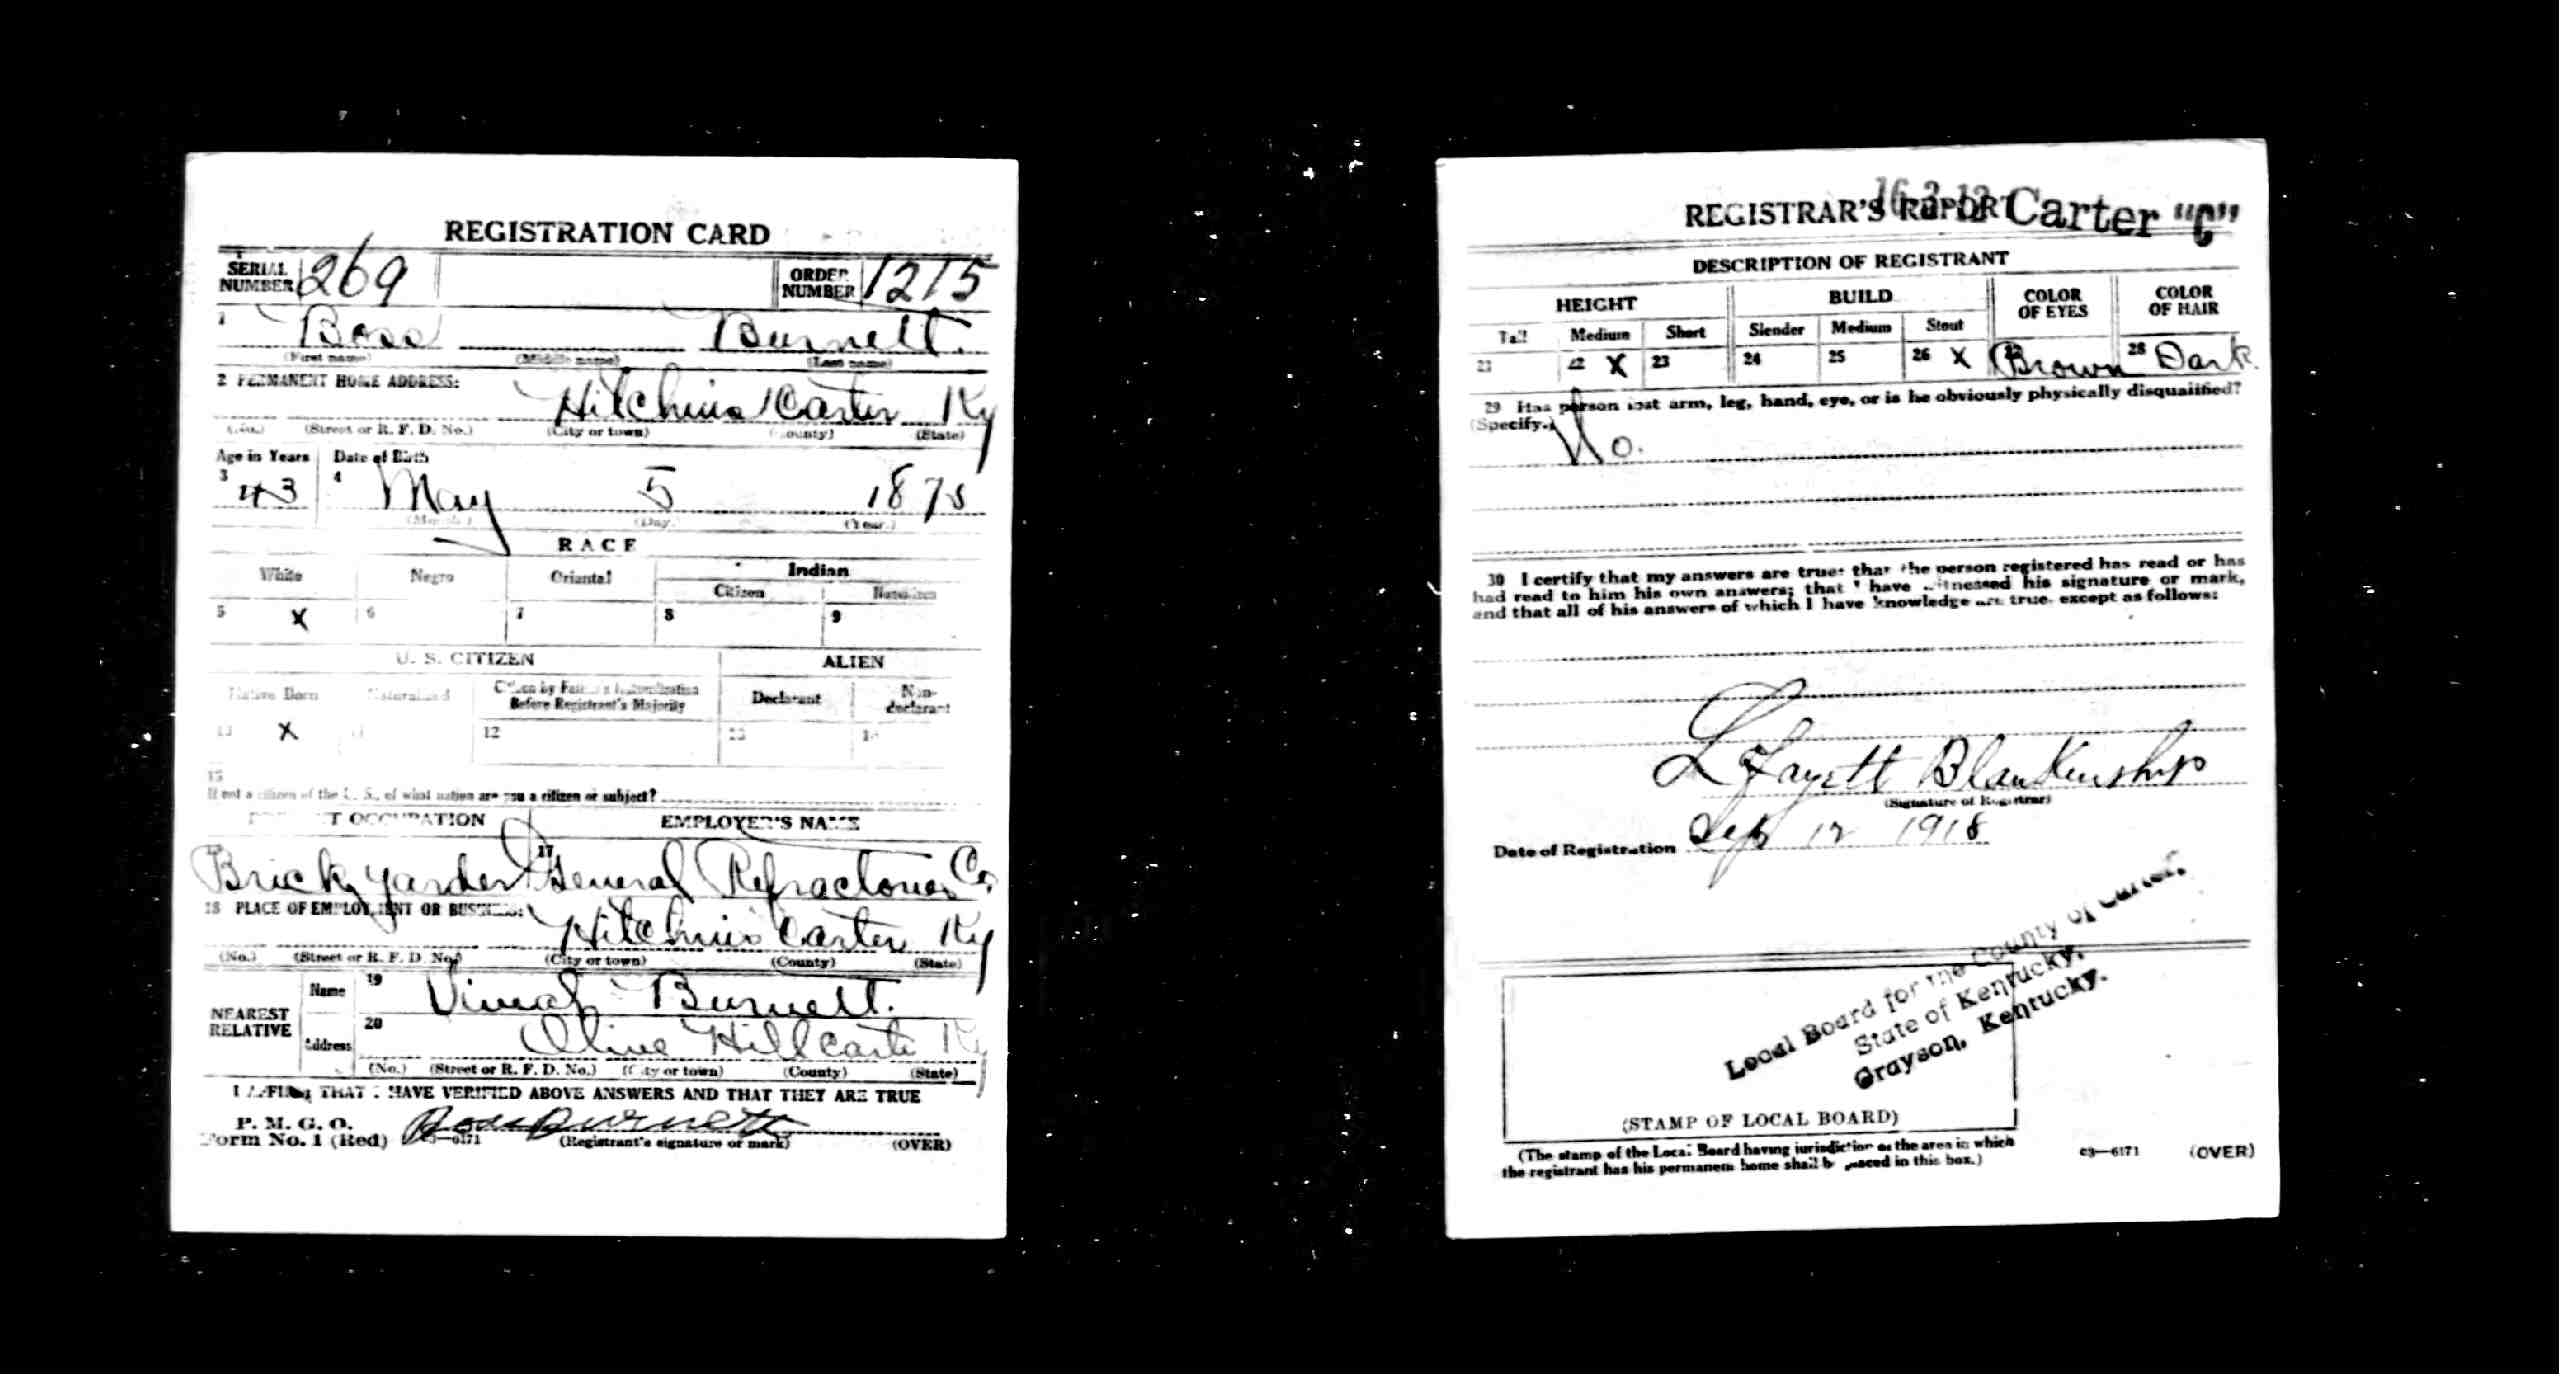 REGISTRATION CARD
SERIAL NUMBER 269 ORDER NUMBER 1215
1 Boss Burnett.
(First name) (Middle name) (Last name)
2 PERMANENT HOME ADDRESS:
Hitchins Carter Ky
(No.) (Street or R. F. D. No.) (City or town) (County) (State)
Age in Years Date of Birth
3 43 4 May 5 1875
(Month.) (Day.) (Year.)
RACE
White Negro Oriental Indian
Citizen Noncitizen
5 X 6 7 8 9
U. S. CITIZEN ALIEN
Native Born Naturalized Citizen by Father's Naturalization Before Registrant's Majority Declarant Non-declarant
X 12
15
If not a citizen of the U. S., of what nation are you a citizen or subject?
PRESENT OCCUPATION EMPLOYER'S NAME
Brick yarder 17 General Refractories Co.
18 PLACE OF EMPLOYMENT OR BUSINESS:
Hitchins Carter Ky
(No.) (Street or R. F. D. No.) (City or town) (County) (State)
NEAREST RELATIVE Name 19 Burnett.
Address 20 Olive Hill Carter Ky
(No.) (Street or R. F. D. No.) (City or town) (County) (State)
I AFFIRM THAT I HAVE VERIFIED ABOVE ANSWERS AND THAT THEY ARE TRUE
P. M. G. O.
Form No. 1 (Red) 03—6171 Boss Burnett
(Registrant's signature or mark) (OVER)
REGISTRAR'S REPORT Carter "C"
DESCRIPTION OF REGISTRANT
HEIGHT BUILD COLOR OF EYES COLOR OF HAIR
Tall Medium Short Slender Medium Stout
21 22 X 23 24 25 26 X 27 Brown 28 Dark.
29 Has person lost arm, leg, hand, eye, or is he obviously physically disqualified?
(Specify.) No.
30 I certify that my answers are true; that the person registered has read or has
had read to him his own answers; that I have witnessed his signature or mark,
and that all of his answers of which I have knowledge are true, except as follows:
Lafayett Blankenship
(Signature of Registrar)
Date of Registration Sep 12 1918
Local Board for the County of Carter,
State of Kentucky,
Grayson, Kentucky.
(STAMP OF LOCAL BOARD)
(The stamp of the Local Board having jurisdiction of the area in which
the registrant has his permanent home shall be placed in this box.)
03—6171 (OVER)